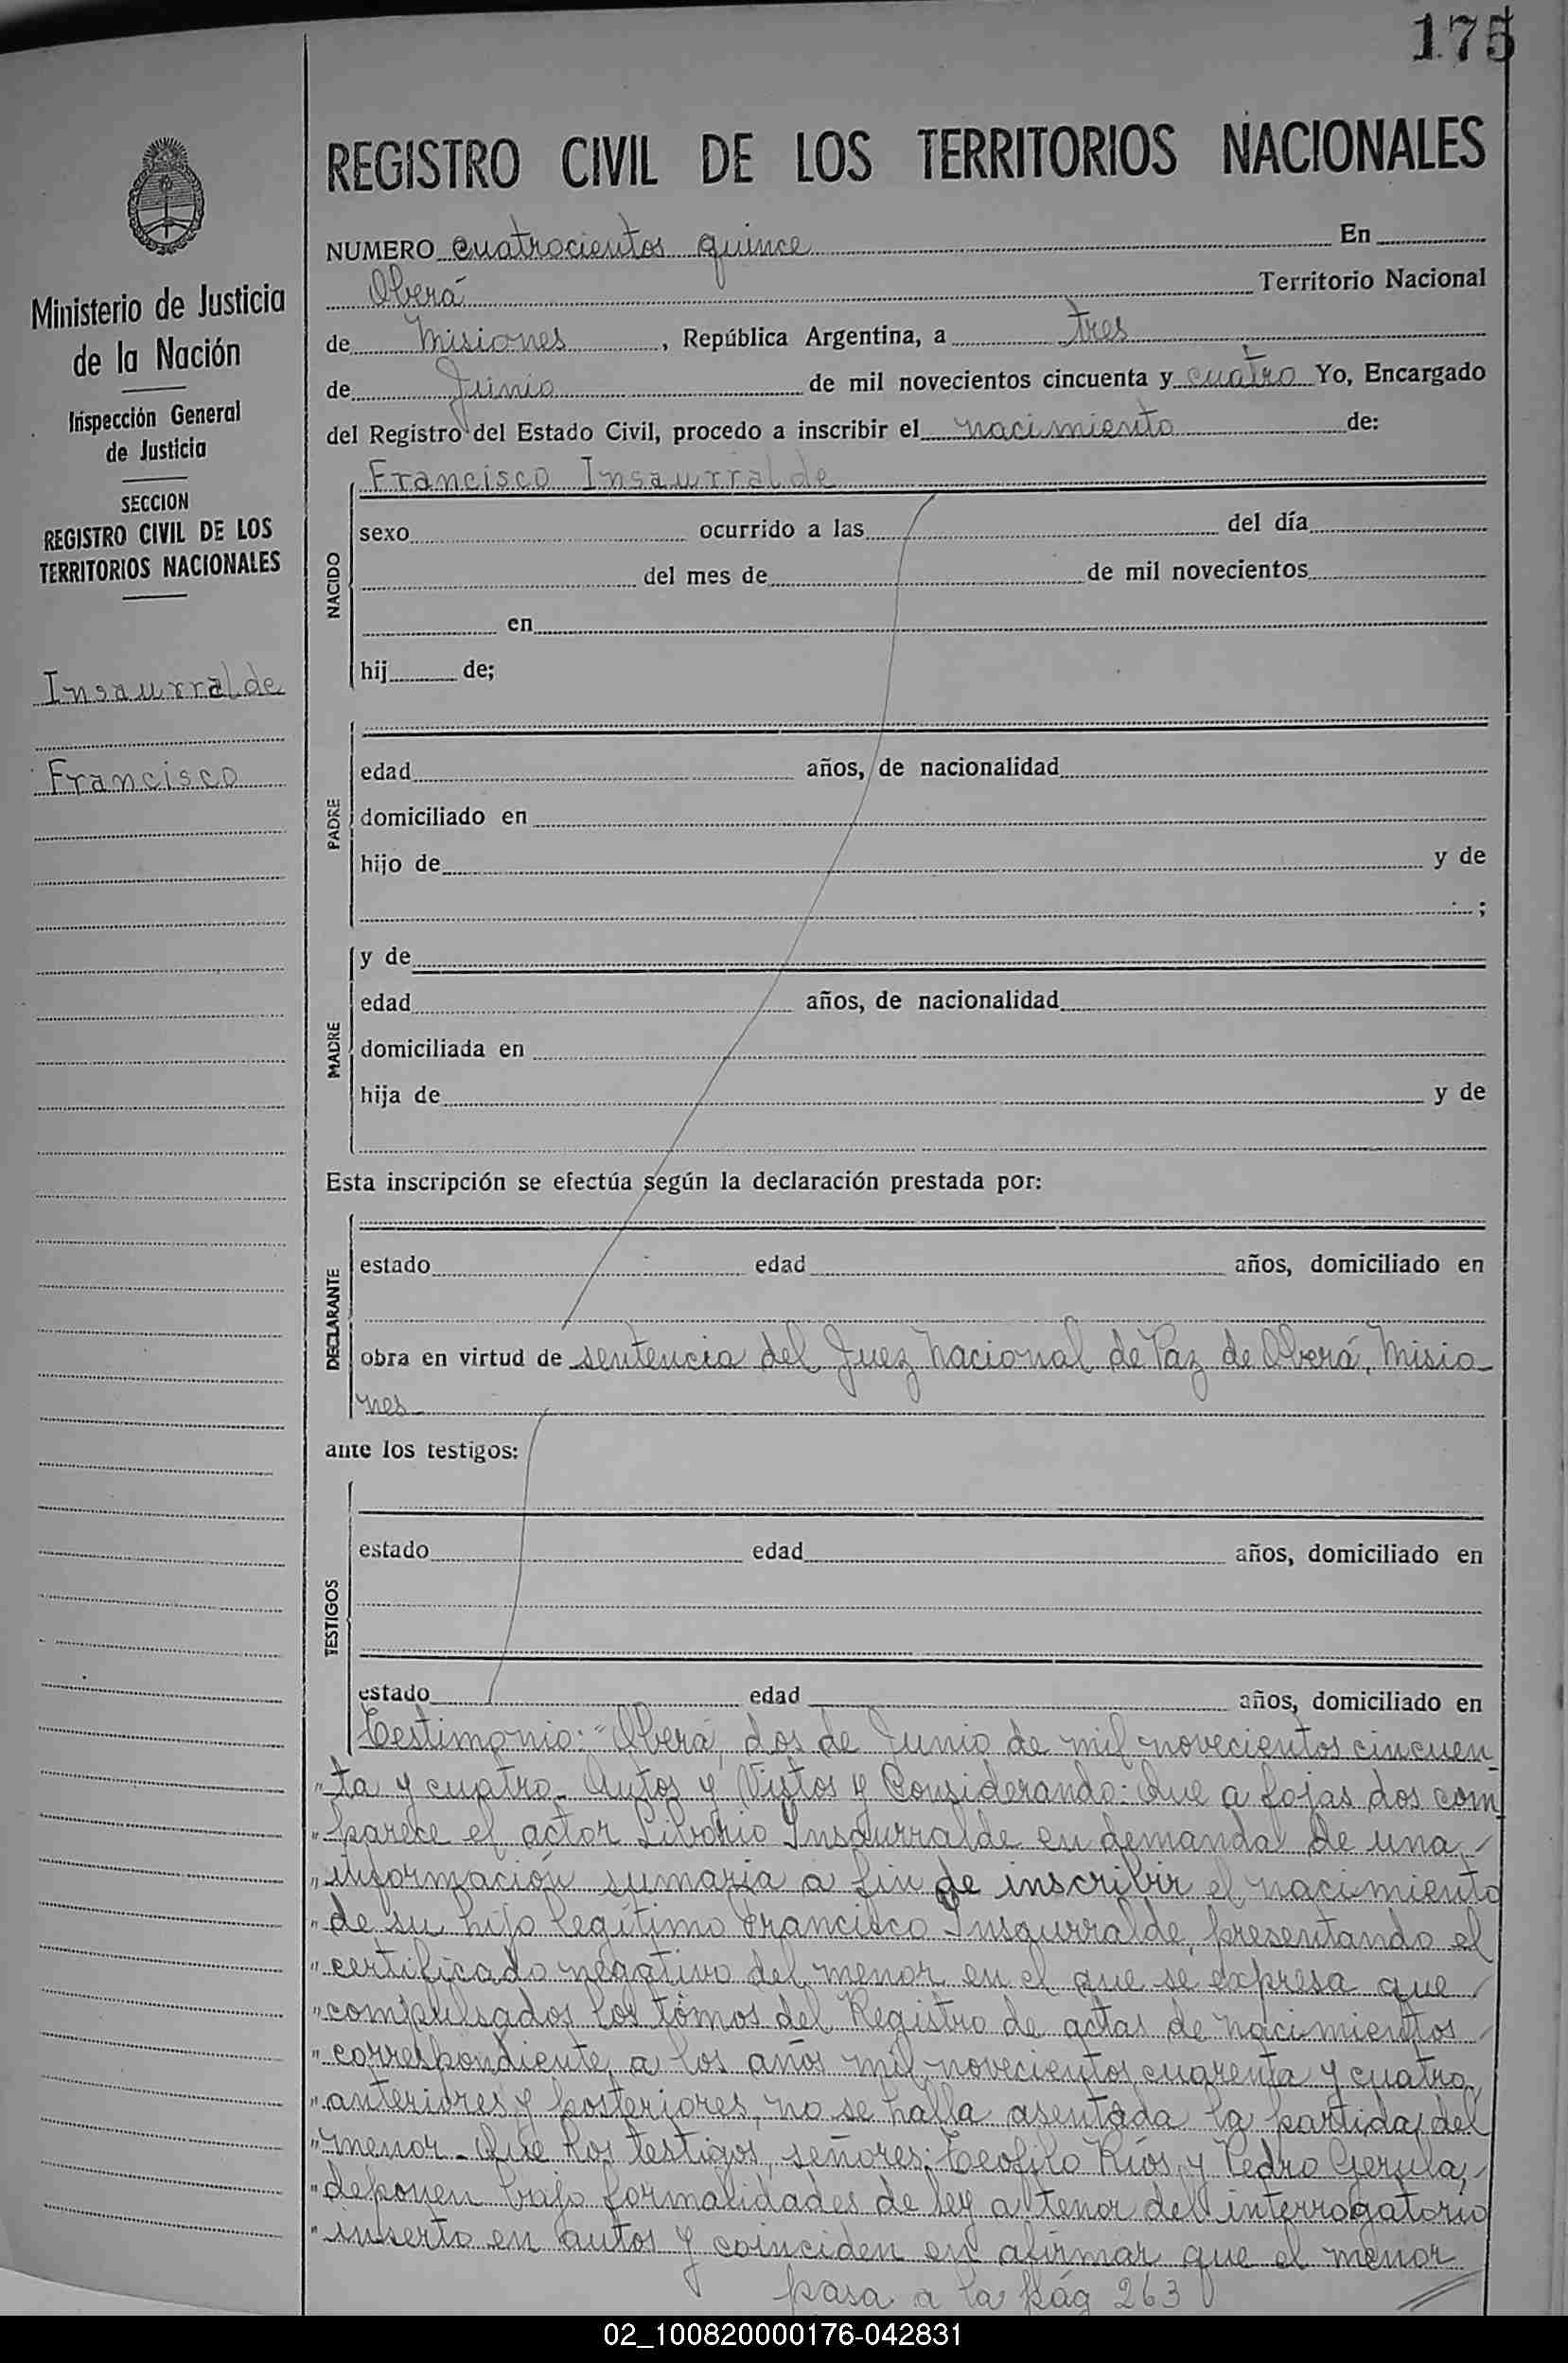 175
REGISTRO CIVIL DE LOS TERRITORIOS NACIONALES
Ministerio de Justicia
de la Nación
Inspección General
de Justicia
SECCION
REGISTRO CIVIL DE LOS
TERRITORIOS NACIONALES
Insaurralde
Francisco
NUMERO cuatrocientos quince En
Oberá Territorio Nacional
de Misiones, República Argentina, a tres
de Junio de mil novecientos cincuenta y cuatro Yo, Encargado
del Registro del Estado Civil, procedo a inscribir el nacimiento de:
Francisco Insaurralde
NACIDO
sexo ocurrido a las del día
del mes de de mil novecientos
en
hij de;
PADRE
edad años, de nacionalidad
domiciliado en
hijo de y de
;
MADRE
y de
edad años, de nacionalidad
domiciliada en
hija de y de
Esta inscripción se efectúa según la declaración prestada por:
DECLARANTE
estado edad años, domiciliado en
obra en virtud de sentencia del Juez Nacional de Paz de Oberá, Misio-
nes
ante los testigos:
TESTIGOS
estado edad años, domiciliado en
estado edad años, domiciliado en
Testimonio: "Oberá, dos de Junio de mil novecientos cincuen-
"ta y cuatro. Autos y Vistos y Considerando: Que a fojas dos com
"parece el actor Liborio Insaurralde en demanda de una
"información sumaria a fin de inscribir el nacimiento
"de su hijo legítimo Francisco Insaurralde, presentando el
"certificado negativo del menor en el que se expresa que
"compulsados los tomos del Registro de actas de nacimientos
"correspondiente a los años mil novecientos cuarenta y cuatro,
"anteriores y posteriores, no se halla asentada la partida del
"menor. Que los testigos, señores: Teofilo Ríos y Pedro Gerula,
"deponen bajo formalidades de ley a tenor del interrogatorio
"inserto en autos y coinciden en afirmar que el menor
pasa a la pág 263
02_100820000176-042831